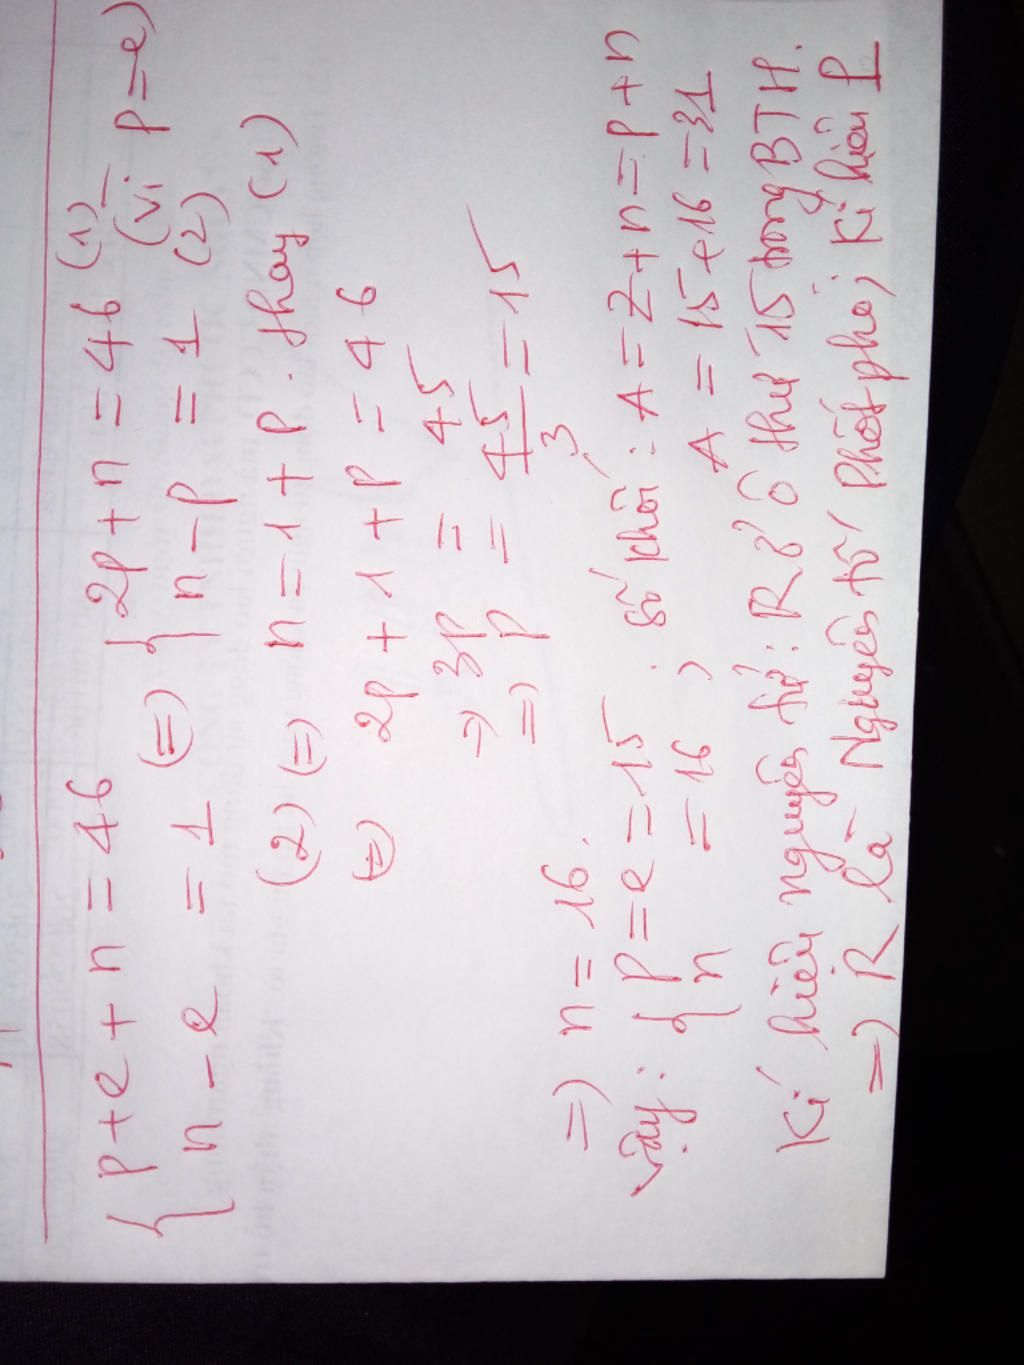 { p + e + n = 46 (=) { 2p + n = 46 (1)
n - e = 1 n - p = 1 (2) (vì p = e)
(2) (=) n = 1 + p. thay (1)
(=) 2p + 1 + p = 46
=> 3p = 45
=> p = 45/3 = 15
=> n = 16.
Vậy: { p = e = 15 ; số khối: A = Z + n = p + n
n = 16 , A = 15 + 16 = 31
Kí hiệu nguyên tử: R ở ô thứ 15 trong BTH.
=> R là Nguyên tố Phốt pho, kí hiệu P